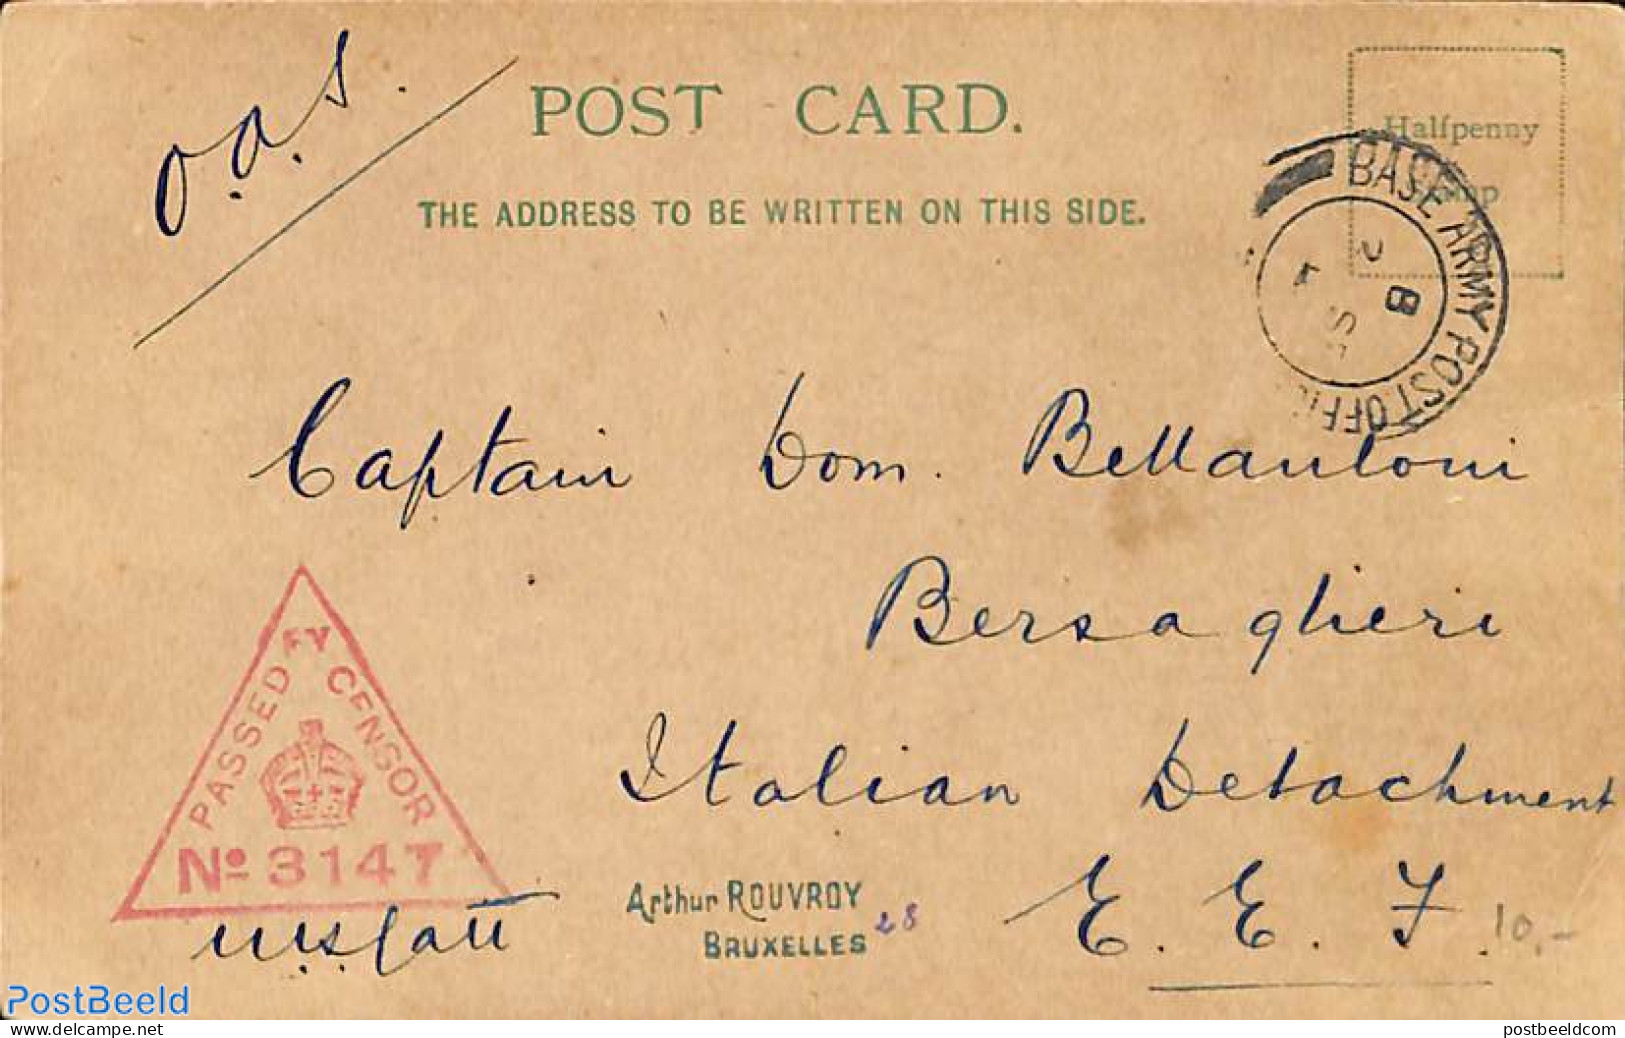 o.a.s.
POST CARD.
THE ADDRESS TO BE WRITTEN ON THIS SIDE.
Halfpenny
BASE ARMY POST OFFI
B
Captain Dom. Bellantoni
Bersaglieri
Italian Detachment
E. E. F.
PASSED BY CENSOR
No 3147
Arthur ROUVROY
BRUXELLES
28
10,-
PostBeeld
www.postbeeld.com
postbeeldcom